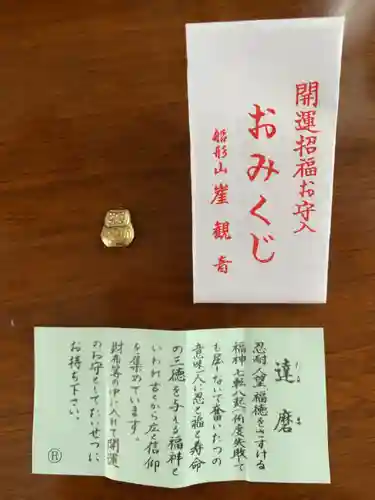 開運招福お守入
おみくじ
船形山 崖観音
達磨
だるま
忍耐、人望、福徳をさずける
福神、七転八起(何度失敗して
も屈しないで奮いたつの
意味)人に忍と福と寿命
の三徳を与える福神と
いわれ古くから広く信仰
を集めています。
財布等の中に入れて開運
のお守としてたいせつに
お持ち下さい。
Ⓗ